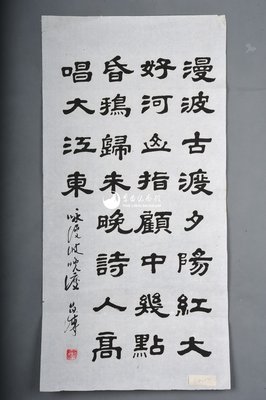 漫波古渡夕陽紅大
好河山指顧中幾點
昏鴉歸未晚詩人高
唱大江東
咏漫波晚渡